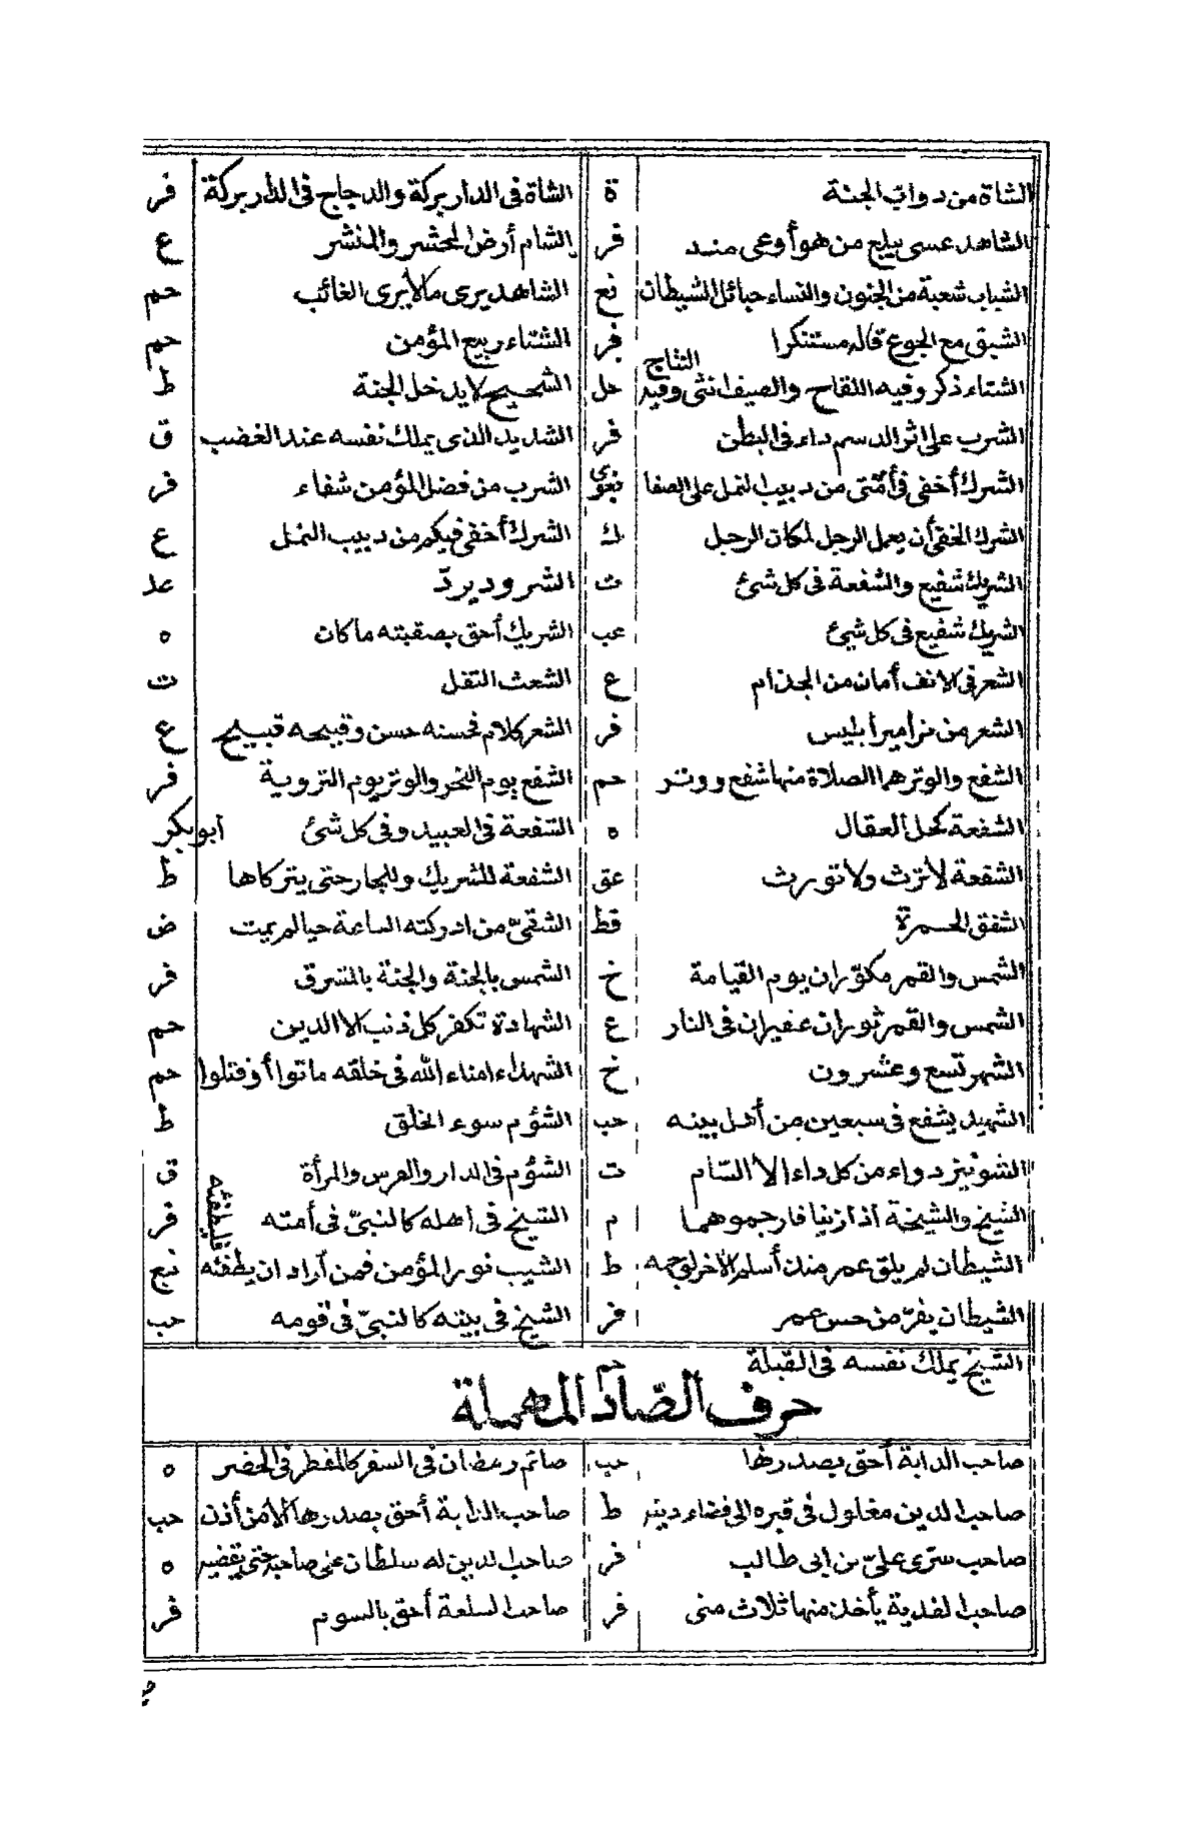 الشاة من دواب الجنة ة الشاة فى الدار بركة والدجاج فى الدار بركة فر
الشاهد عسى يبلغ من هو أوعى منه فر الشام أرض المحشر والمنشر ع
الشباب شعبة من الجنون والنساء حبائل الشيطان نع الشاهد يرى مالا يرى الغائب حم
الشبق مع الجوع قاله مستنكرا فر الشتاء ربيع المؤمن حم
الشتاء ذكر وفيه اللقاح والصيف انثى وفيه النتاج حل الشحيح لا يدخل الجنة ط
الشرب على اثر الدسم داء فى البطن فر الشديد الذى يملك نفسه عند الغضب ق
الشرك أخفى فى أمتى من دبيب النمل على الصفا بغوى الشرب من فضل المؤمن شفاء فر
الشرك الخفى أن يعمل الرجل لمكان الرجل ك الشرك أخفى فيكم من دبيب النمل ع
الشريك شفيع والشفعة فى كل شئ ت الشرود يردّ عد
الشريك شفيع فى كل شئ عب الشريك أحق بصقبته ما كان ه
الشعر فى الانف أمان من الجذام ع الشعث التفل ت
الشعر من مزامير ابليس فر الشعر كلام فحسنه حسن وقبيحه قبيح ع
الشفع والوتر هما الصلاة منها شفع ووتر حم الشفع يوم النحر والوتر يوم التروية فر
الشفعة كحل العقال ه الشفعة فى العبيد وفى كل شئ أبو بكر
الشفعة لا ترث ولا تورث عق الشفعة للشريك وللجار حتى يتركاها ط
الشفق الحمرة قط الشقىّ من ادركته الساعة حيا لم يمت ض
الشمس والقمر مكوّران يوم القيامة خ الشمس بالجنة والجنة بالمشرق فر
الشمس والقمر ثوران عقيران فى النار ع الشهادة تكفر كل ذنب الا الدين حم
الشهر تسع وعشرون خ الشهداء امناء الله فى خلقه ماتوا أو قتلوا حم
الشهيد يشفع فى سبعين من أهل بيته حب الشؤم سوء الخلق ط
الشونيز دواء من كل داء الا السّام ت الشؤم فى الدار والفرس والمرأة ق
الشيخ والشيخة اذا زنيا فارجموهما م الشيخ فى اهله كالنبىّ فى أمته فر
الشيطان لم يلق عمر منذ أسلم الا خر لوجهه ط الشيب نور المؤمن فمن أراد ان يطفئه فليطفئه نع
الشيطان يفرّ من حس عمر فر الشيخ فى بيته كالنبىّ فى قومه حب
الشيخ يملك نفسه فى القبلة حم
حرف الصّاد المهملة
صاحب الدابة أحق بصدرها حب صائم رمضان فى السفر كالمفطر فى الحضر ه
صاحب الدين مغلول فى قبره الى قضاء دينه ط صاحب الدابة أحق بصدرها الا من أذن حب
صاحب سرّى علىّ بن ابى طالب فر صاحب الدين له سلطان على صاحبه حتى يقضيه ه
فر صاحب السلعة أحق بالسوم فر